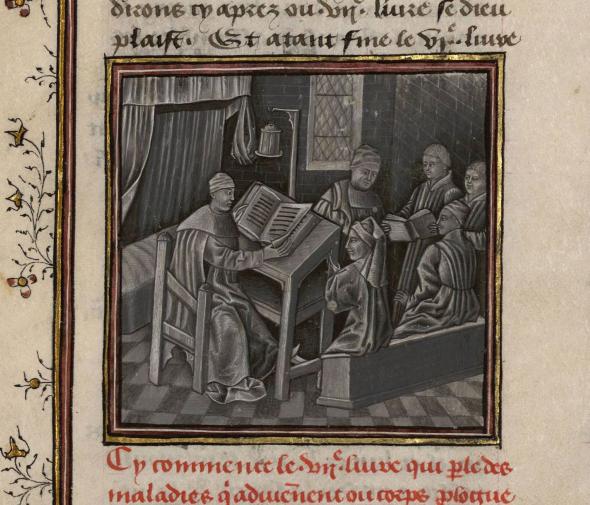 dirons cy aprez ou .viie. liure se dieu
plaist. Et atant fine le vie. liure
Cy commence le .viie. liure qui ple des
maladies q̄ aduieñent ou corps